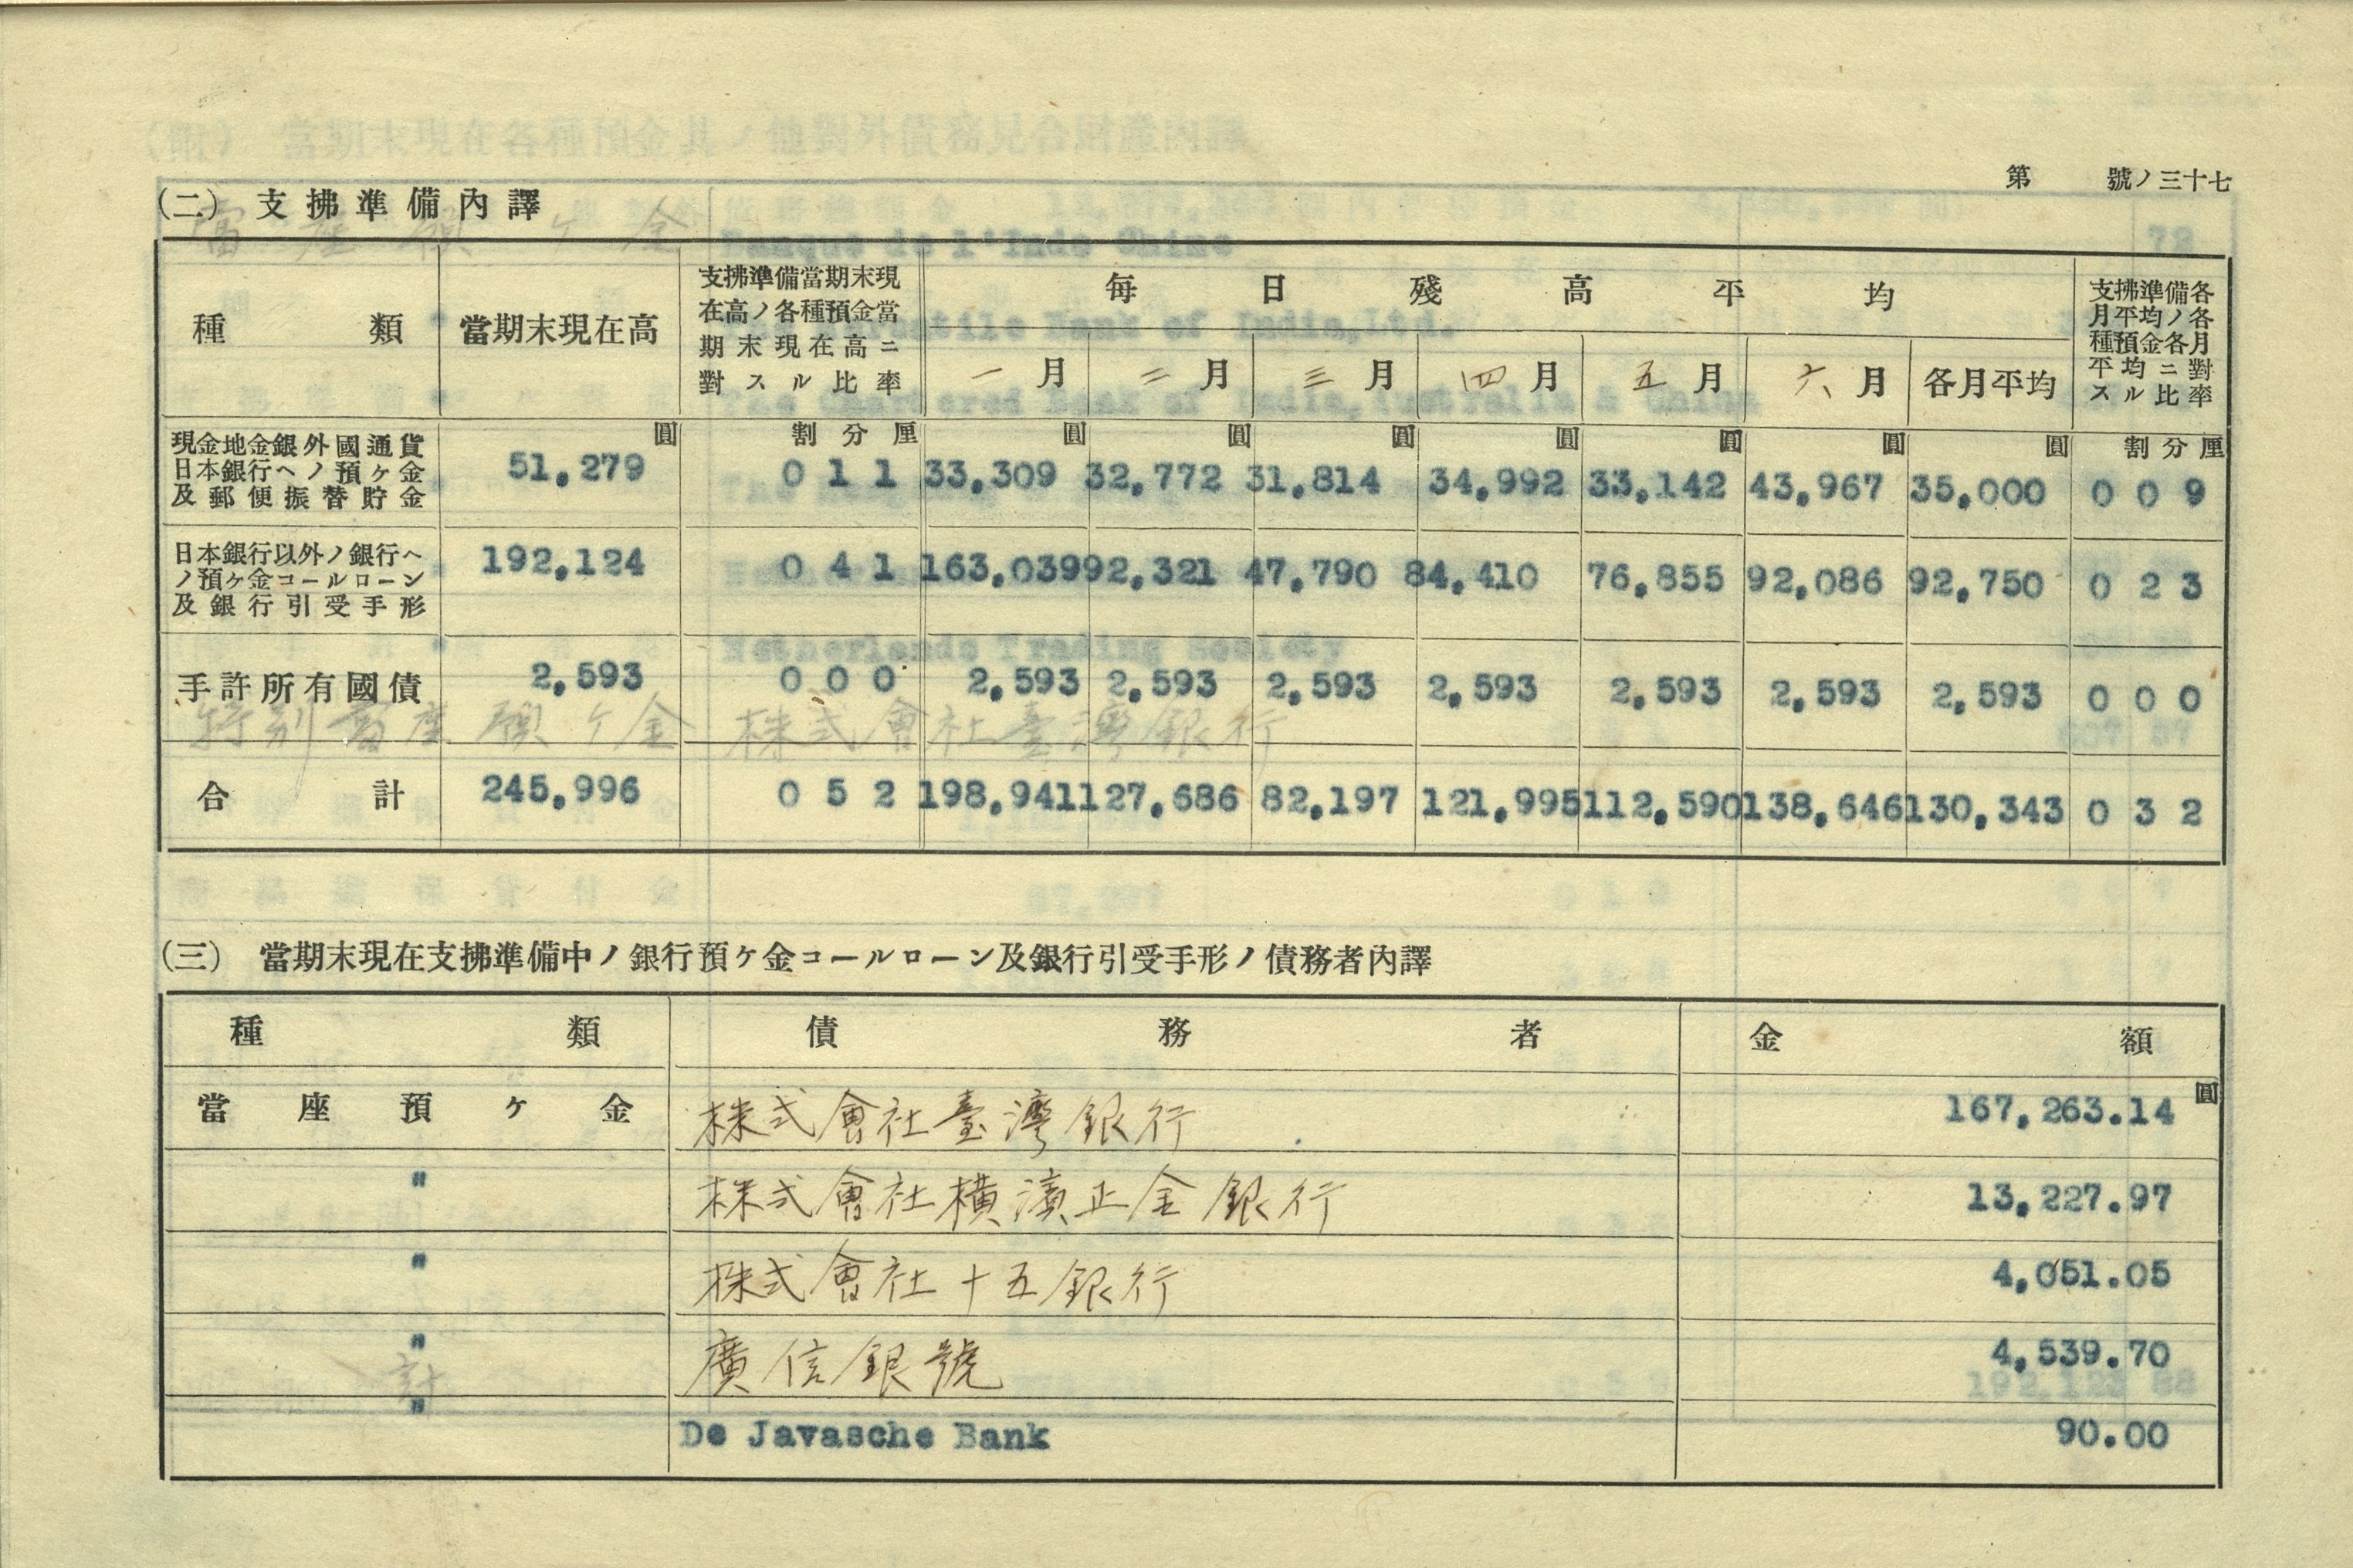 第 號ノ三十七
(二) 支拂準備內譯
種類 當期末現在高 支拂準備當期末現在高ノ各種預金當期末現在高ニ對スル比率 每日殘高平均 支拂準備各月平均ノ各種預金各月平均ニ對スル比率
一月 二月 三月 四月 五月 六月 各月平均
圓 割分厘 圓 圓 圓 圓 圓 圓 圓 割分厘
現金地金銀外國通貨
日本銀行ヘノ預ケ金
及郵便振替貯金
51,279 0 1 1 33,309 32,772 31,814 34,992 33,142 43,967 35,000 0 0 9
日本銀行以外ノ銀行ヘ
ノ預ケ金コールローン
及銀行引受手形
192,124 0 4 1 163,039 92,321 47,790 84,410 76,855 92,086 92,750 0 2 3
手許所有國債 2,593 0 0 0 2,593 2,593 2,593 2,593 2,593 2,593 2,593 0 0 0
合計 245,996 0 5 2 198,941 127,686 82,197 121,995 112,590 138,646 130,343 0 3 2
(三) 當期末現在支拂準備中ノ銀行預ケ金コールローン及銀行引受手形ノ債務者內譯
種類 債務者 金額
當座預ケ金 株式會社臺灣銀行 167,263.14 圓
〃 株式會社橫濱正金銀行 13,227.97
〃 株式會社十五銀行 4,051.05
〃 廣信銀號 4,539.70
〃 De Javasche Bank 90.00